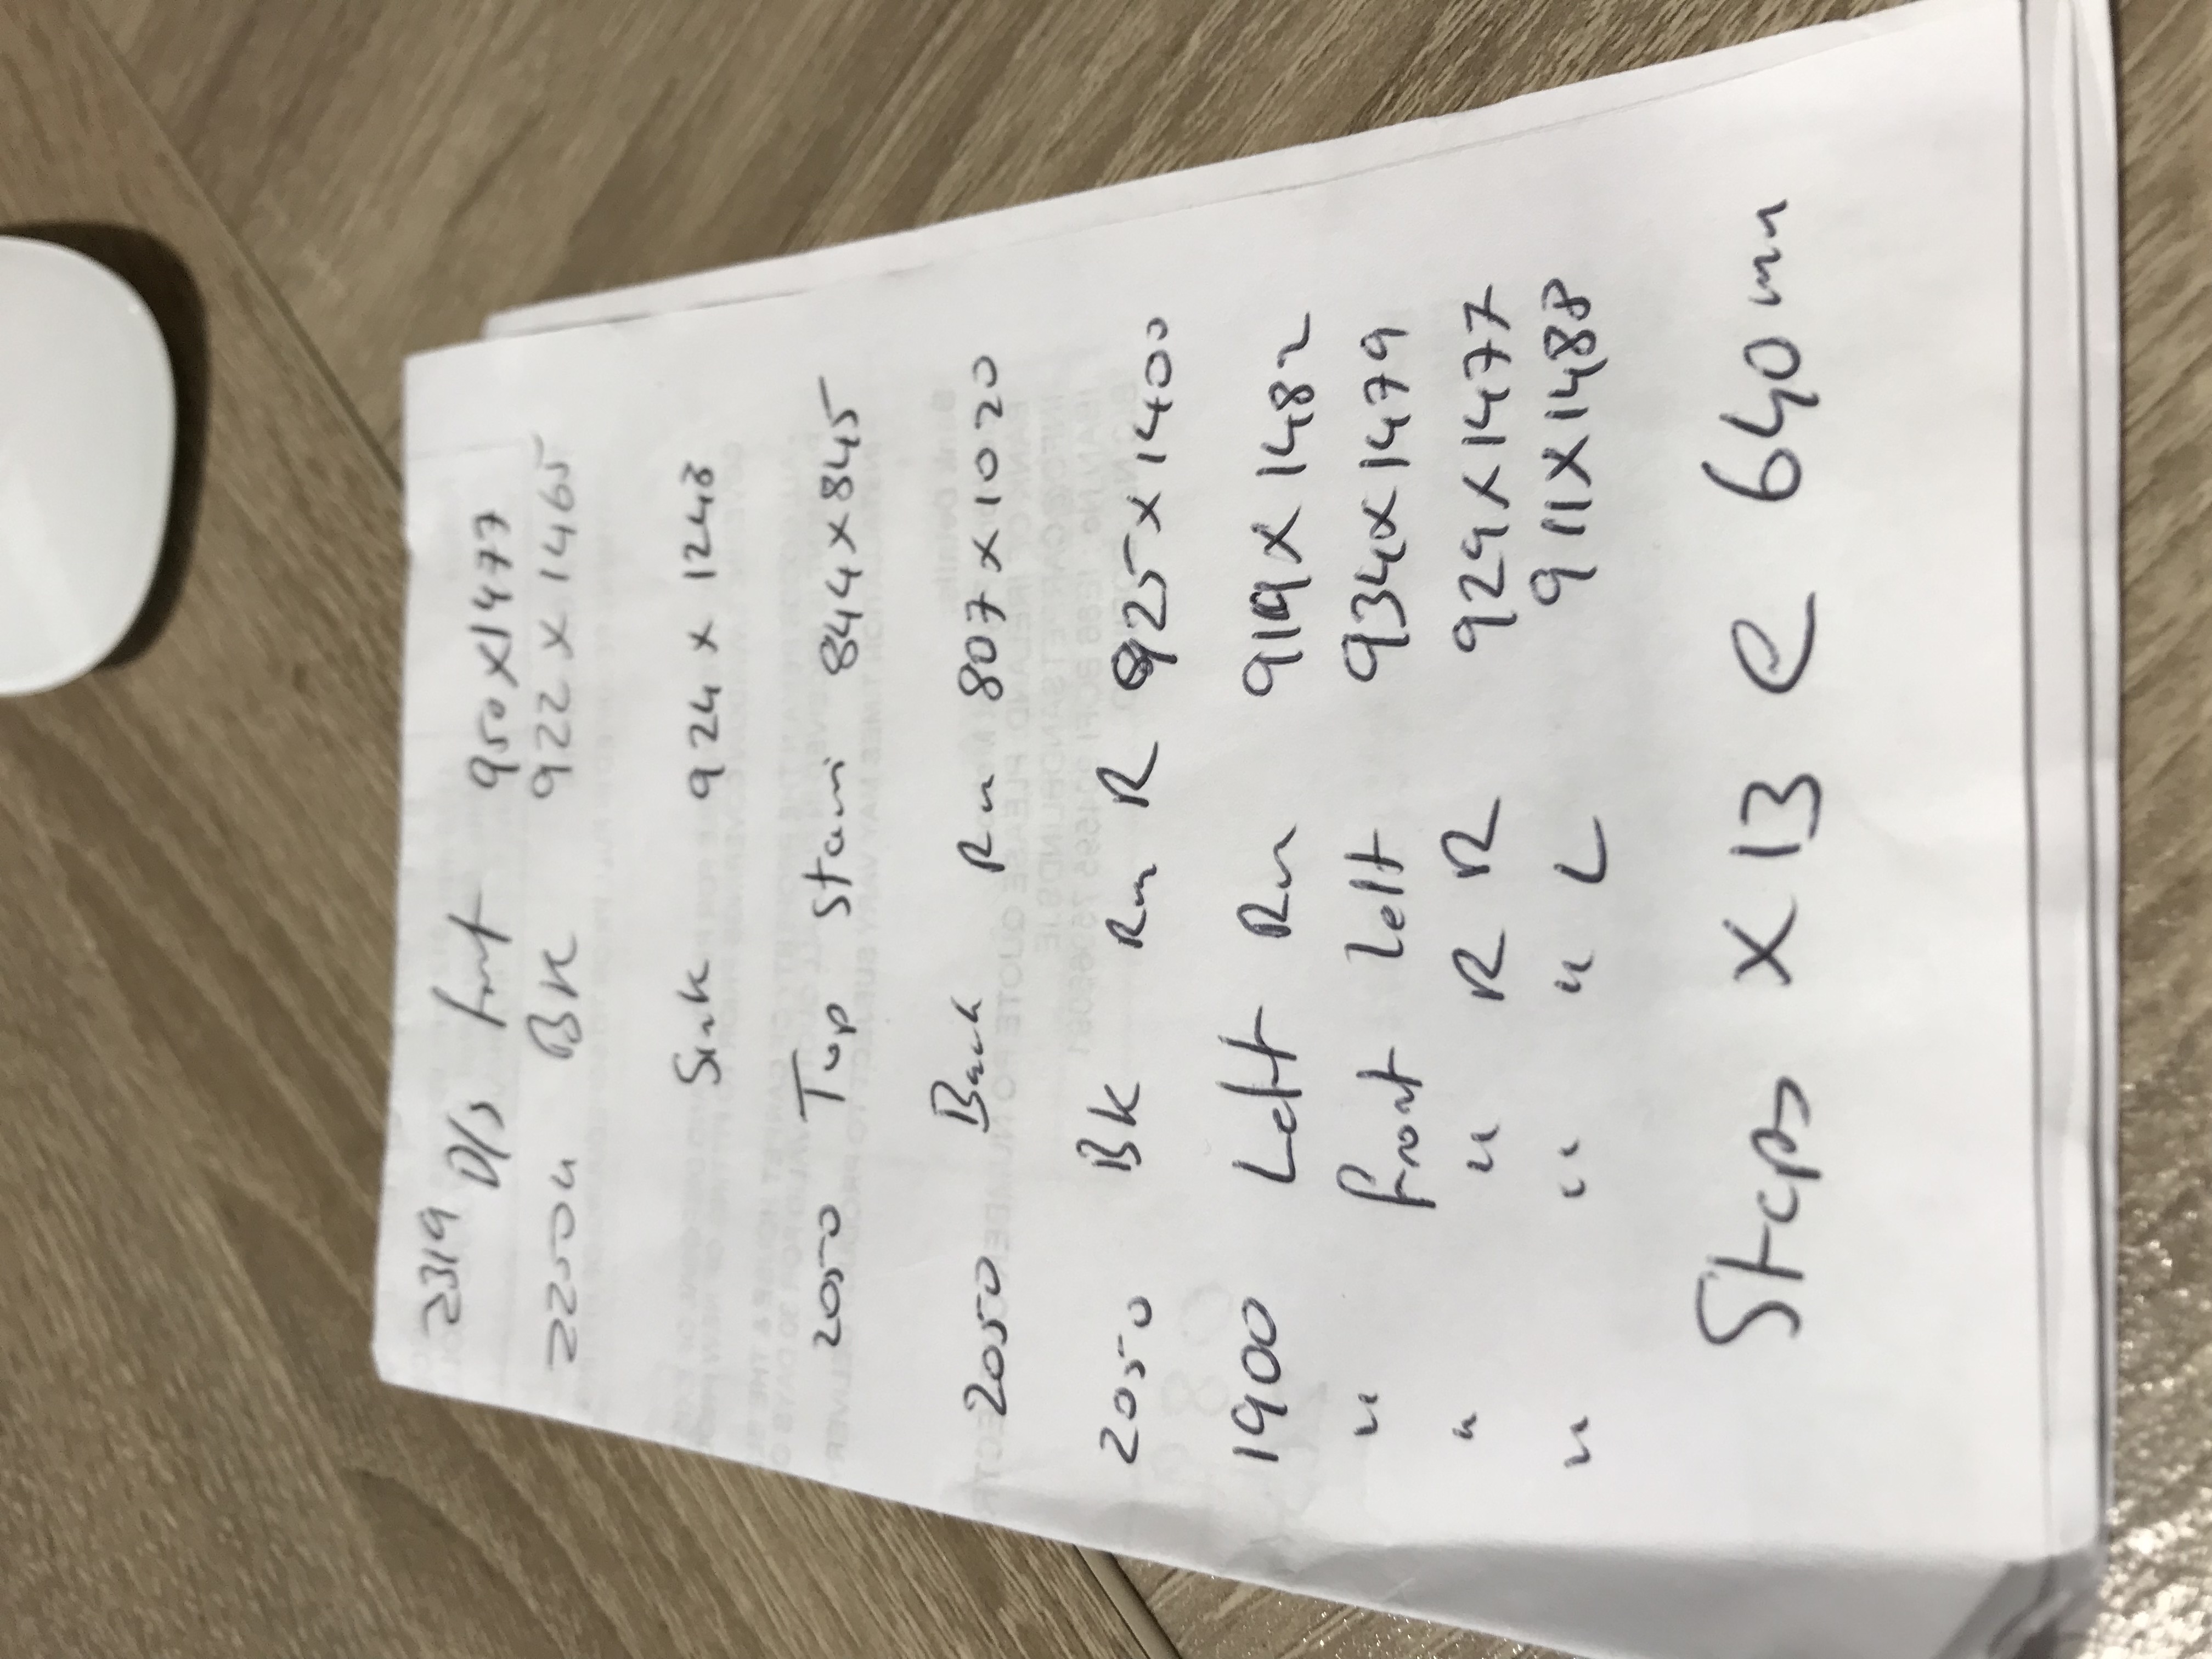 2319 D/s front 950 x 1477
2250 u BK 922 x 1465
Sink 924 x 1243
2050 Top Stairs 844 x 845
2050 Back Rm 807 x 1020
2050 BK Rm R 925 x 1400
1900 Left Rm 919 x 1482
" front left 934 x 1479
" " R R 929 x 1477
" " " L 911 x 1488
Steps x 13 @ 640 mm